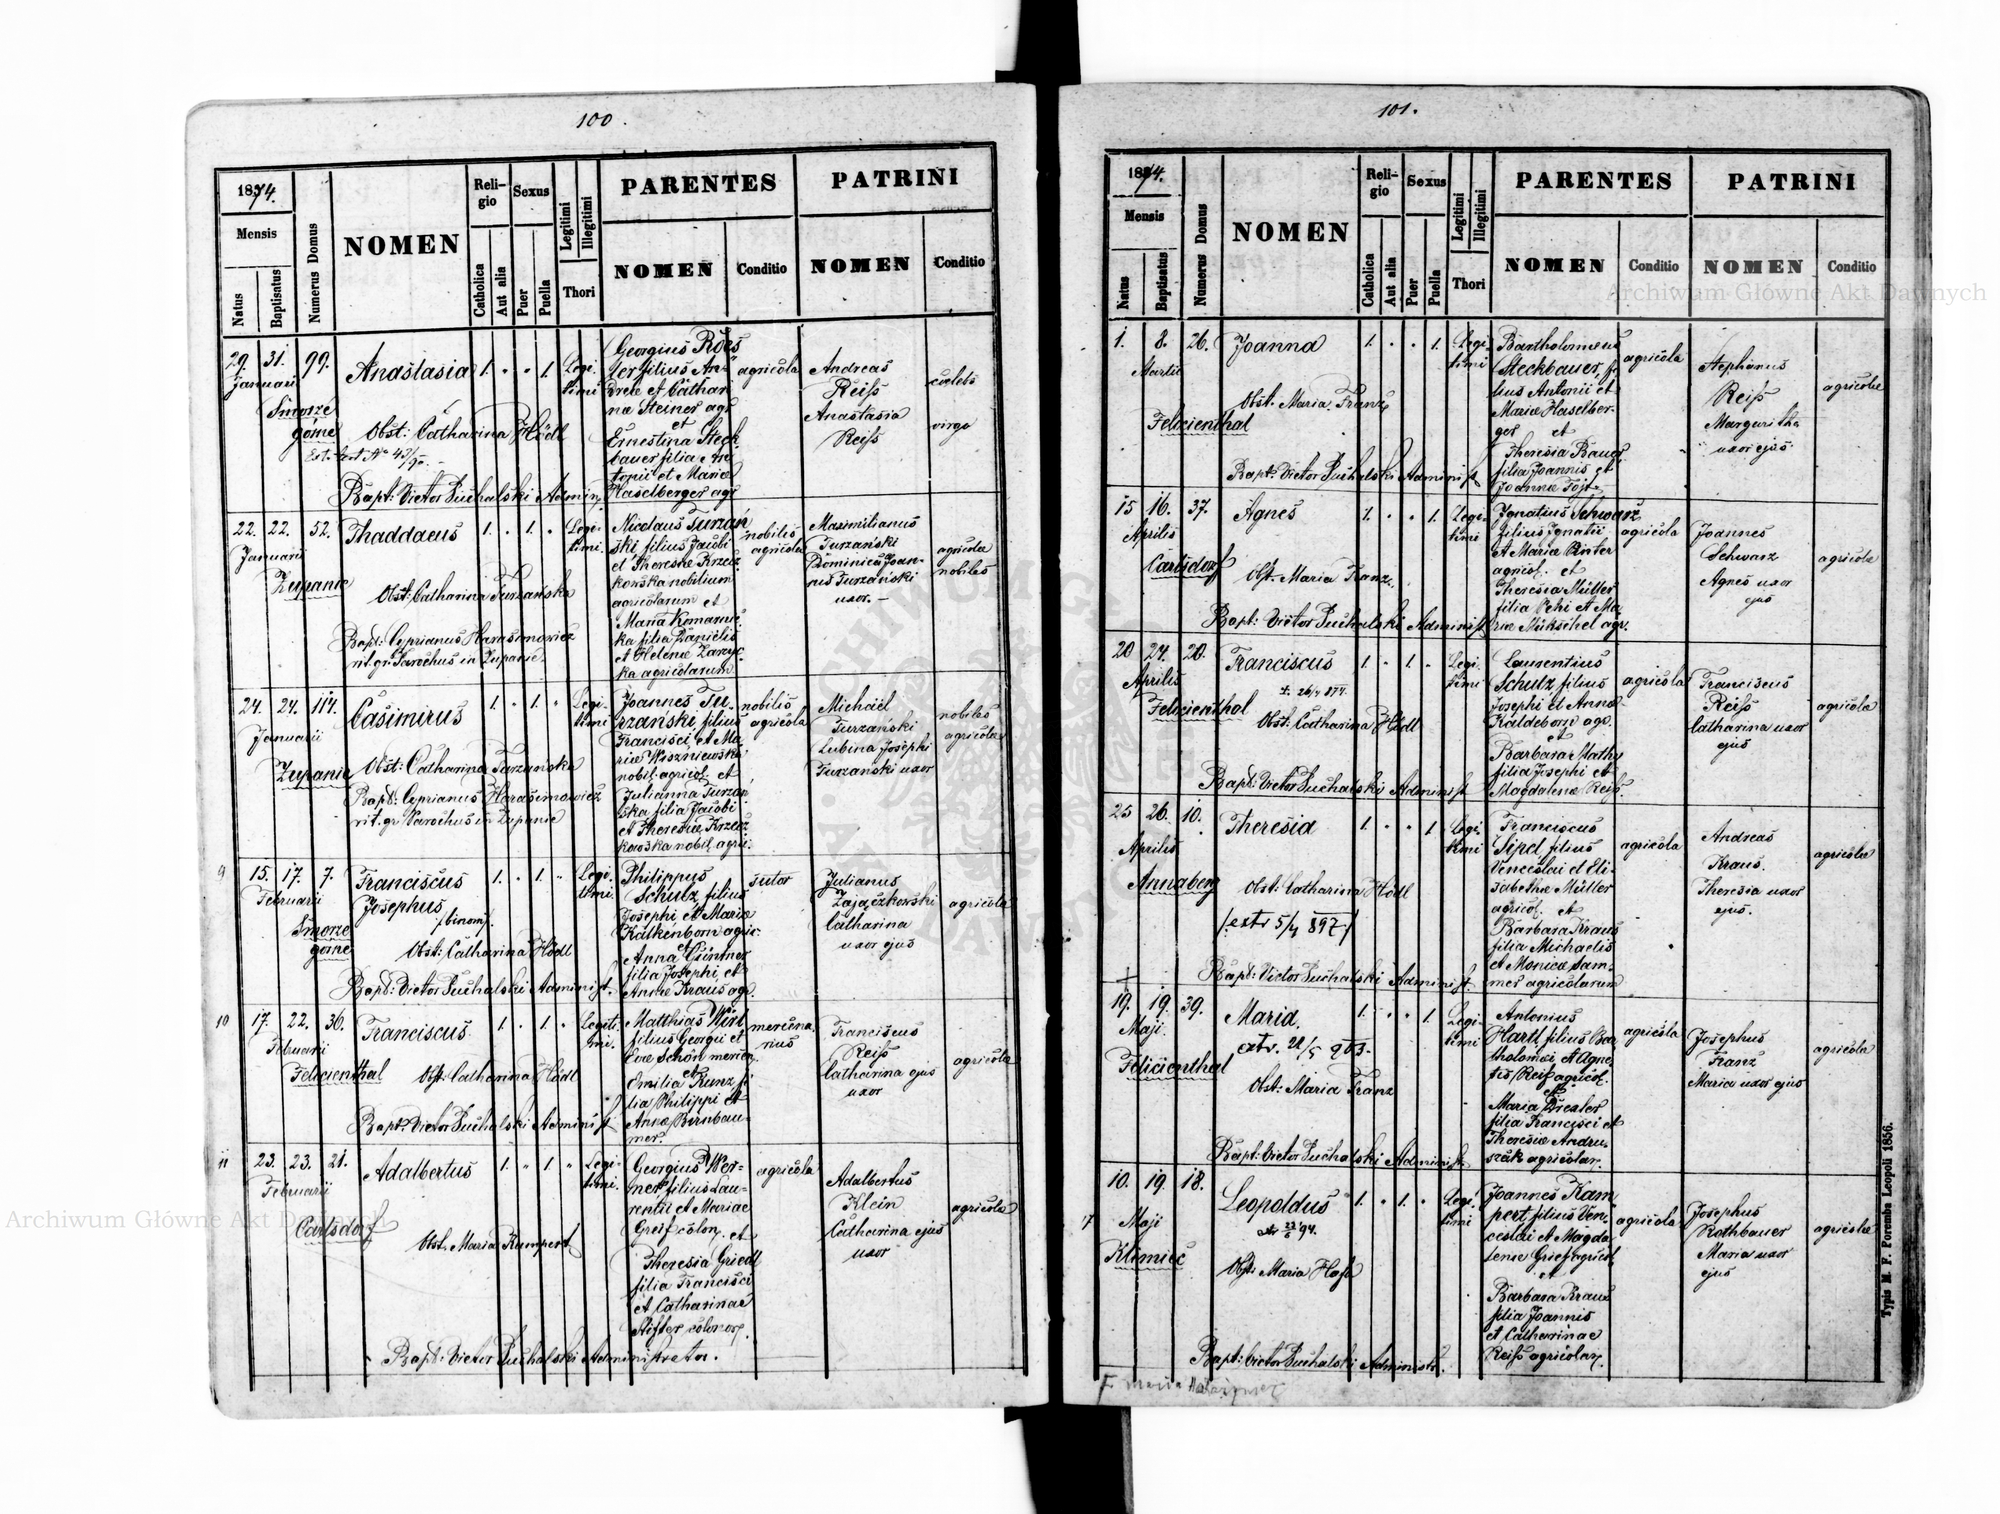 100.
1874.
Mensis
Natus
Baptisatus
Numerus Domus
NOMEN
Reli-
gio
Catholica
Aut alia
Sexus
Puer
Puella
Legitimi
Illegitimi
Thori
PARENTES
NOMEN
Conditio
PATRINI
NOMEN
Conditio
29. 31. 99.
Januarii
Smorze
górne
Anastasia 1. " " 1.
Legi-
timi
Obst: Catharina Hödl
Bapt: Victor Puchalski Admin.
Georgius Roes
ler filius An-
dreæ et Cathari
næ Steiner agr
et
Ernestina Steck
bauer filia An
tonii et Mariæ
Haselberger agr
agricola
Andreas
Reiſs
Anastasia
Reiſs
cœlebs
virgo
22. 22. 52.
Januarii
Zupanie
Thaddaeus 1. " 1. "
Legi-
timi.
Obst: Catharina Turzańska
Bapt: Cyprianus Harasimowicz
rit. gr. Parochus in Zupanie
Nicolaus Turzań
ski filius Jacobi
et Theresiæ Krzecz
kowska nobilium
agricolarum et
Maria Komarnic
ka filia Danielis
et Helenæ Zarzyc
ka agricolarum
nobilis
agricola
Maximilianus
Turzański
Dominica Joan-
nis Turzański
uxor. -
agricolæ
nobiles
24. 24. 114.
Januarii
Zupanie
Casimirus 1. " 1. "
Legi-
timi
Obst: Catharina Turzanska
Bapt: Cyprianus Harasimowicz
rit. gr. Parochus in Zupanie
Joannes Tu-
rzański filius
Francisci et Ma-
riæ Wiszniewska
nobil. agricol. et
Julianna Turzań
ska filia Jacobi
et Theresiæ Krzecz
kowska nobil. agric.
nobilis
agricola
Michael
Turzański
Lubina Josephi
Turzański uxor
nobiles
agricolæ
9
15. 17. 7.
Februarii
Smorze
górne
Franciscus
Josephus
/binom/.
1. " 1. "
Legi-
timi.
Obst: Catharina Hödl
Bapt: Victor Puchalski Administ.
Philippus
Schulz filius
Josephi et Mariæ
Kaltenborn agric.
et
Anna Güntner
filia Josephi et
Annæ Kraus agr.
sutor
Julianus
Zajączkowski
Catharina
uxor ejus
agricolæ
10
17. 22. 36.
Februarii
Felicienthal
Franciscus 1. " 1. "
Legiti-
mi.
Obst: Catharina Hödl
Bapt: Victor Puchalski Administ
Matthias Wirl
filius Georgii et
Evæ Schön mercen.
et
Emilia Kunz fi
lia Philippi et
Annæ Birnbau-
mer.
mercena-
rius
Franciscus
Reiſs
Catharina ejus
uxor
agricolæ
11
23. 23. 21.
Februarii
Carlsdorf
Adalbertus 1. " 1. "
Legi-
timi.
Obst. Maria Rumpert
Bapt: Victor Puchalski Administrator.
Georgius Wer-
ner filius Lau-
rentii et Mariae
Greif colon. et
Theresia Griedl
filia Francisci
et Catharinae
Stifter colonor.
agricola
Adalbertus
Klein
Catharina ejus
uxor
agricolæ
101.
1874.
Mensis
Natus
Baptisatus
Numerus Domus
NOMEN
Reli-
gio
Catholica
Aut alia
Sexus
Puer
Puella
Legitimi
Illegitimi
Thori
PARENTES
NOMEN
Conditio
PATRINI
NOMEN
Conditio
1. 8. 26.
Martii
Felicienthal
Joanna 1. " " 1.
Legi-
timi
Obst. Maria Franz
Bapt: Victor Puchalski Administ
Bartholomæus
Steckbauer, fi
lius Antonii et
Mariæ Haselber-
ger et
Theresia Bauer
filia Joannis et
Joannæ
agricola
Stephanus
Reiſs
Margaritha
uxor ejus
agricolæ
15 16. 37.
Aprilis
Carlsdorf
Agnes 1. " " 1.
Legi-
timi
Obst. Maria Franz.
Bapt: Victor Puchalski Administ
Ignatius Schwarz
filius Ignatii
et Mariæ Pinter
agricol. et
Theresia Müller
filia Petri et Ma-
riæ Mükschel agr.
agricola
Joannes
Schwarz
Agnes uxor
ejus
agricolæ
20 24. 20.
Aprilis
Felicienthal
Franciscus 1. " 1. "
Legi-
timi
Obst: Catharina Hödl
Bapt: Victor Puchalski Administ
Laurentius
Schulz filius
Josephi et Annæ
Kaldeborn agr.
et
Barbara Mathy
filia Josephi et
Magdalenæ Reiſs.
agricola
Franciscus
Reiſs
Catharina uxor
ejus
agricolæ
25 26. 10.
Aprilis
Annaberg
Theresia 1. " " 1.
Legi-
timi
Obst: Catharina Hödl
/extr 5/4 897/
Bapt: Victor Puchalski Administ.
Franciscus
Sipel filius
Venceslai et Eli-
sabethæ Müller
agricol. et
Barbara Kraus
filia Michaelis
et Monicæ Sam-
mer agricolarum
agricola
Andreas
Kraus.
Theresia uxor
ejus.
agricolæ
19. 19. 39.
Maji
Felicienthal
Maria. 1. " " 1.
Legi-
timi
Obst: Maria Franz
Bapt: Victor Puchalski Administ.
Antonius
Hartl filius Bar
tholomæi et Agne-
tis Reiſs agricol.
et
Maria Drexler
filia Francisci et
Theresiæ Andru-
szak agricolar.
agricola
Josephus
Franz
Maria uxor ejus
agricolæ
17
10. 19. 18.
Maji
Klimiec
Leopoldus 1. " 1. "
Legi-
timi
Obst: Maria Hasl
Bapt: Victor Puchalski Administr.
Joannes Ram
pert filius Ven-
ceslai et Magda
lenæ Grief agricol.
et
Barbara Kraus
filia Joannis
et Catharinae
Reiſs agricolar.
agricola
Josephus
Rothbauer
Maria uxor
ejus
agricolæ
Typis M. F. Poremba Leopoli 1856.
Archiwum Główne Akt Dawnych
Archiwum Główne Akt Dawnych